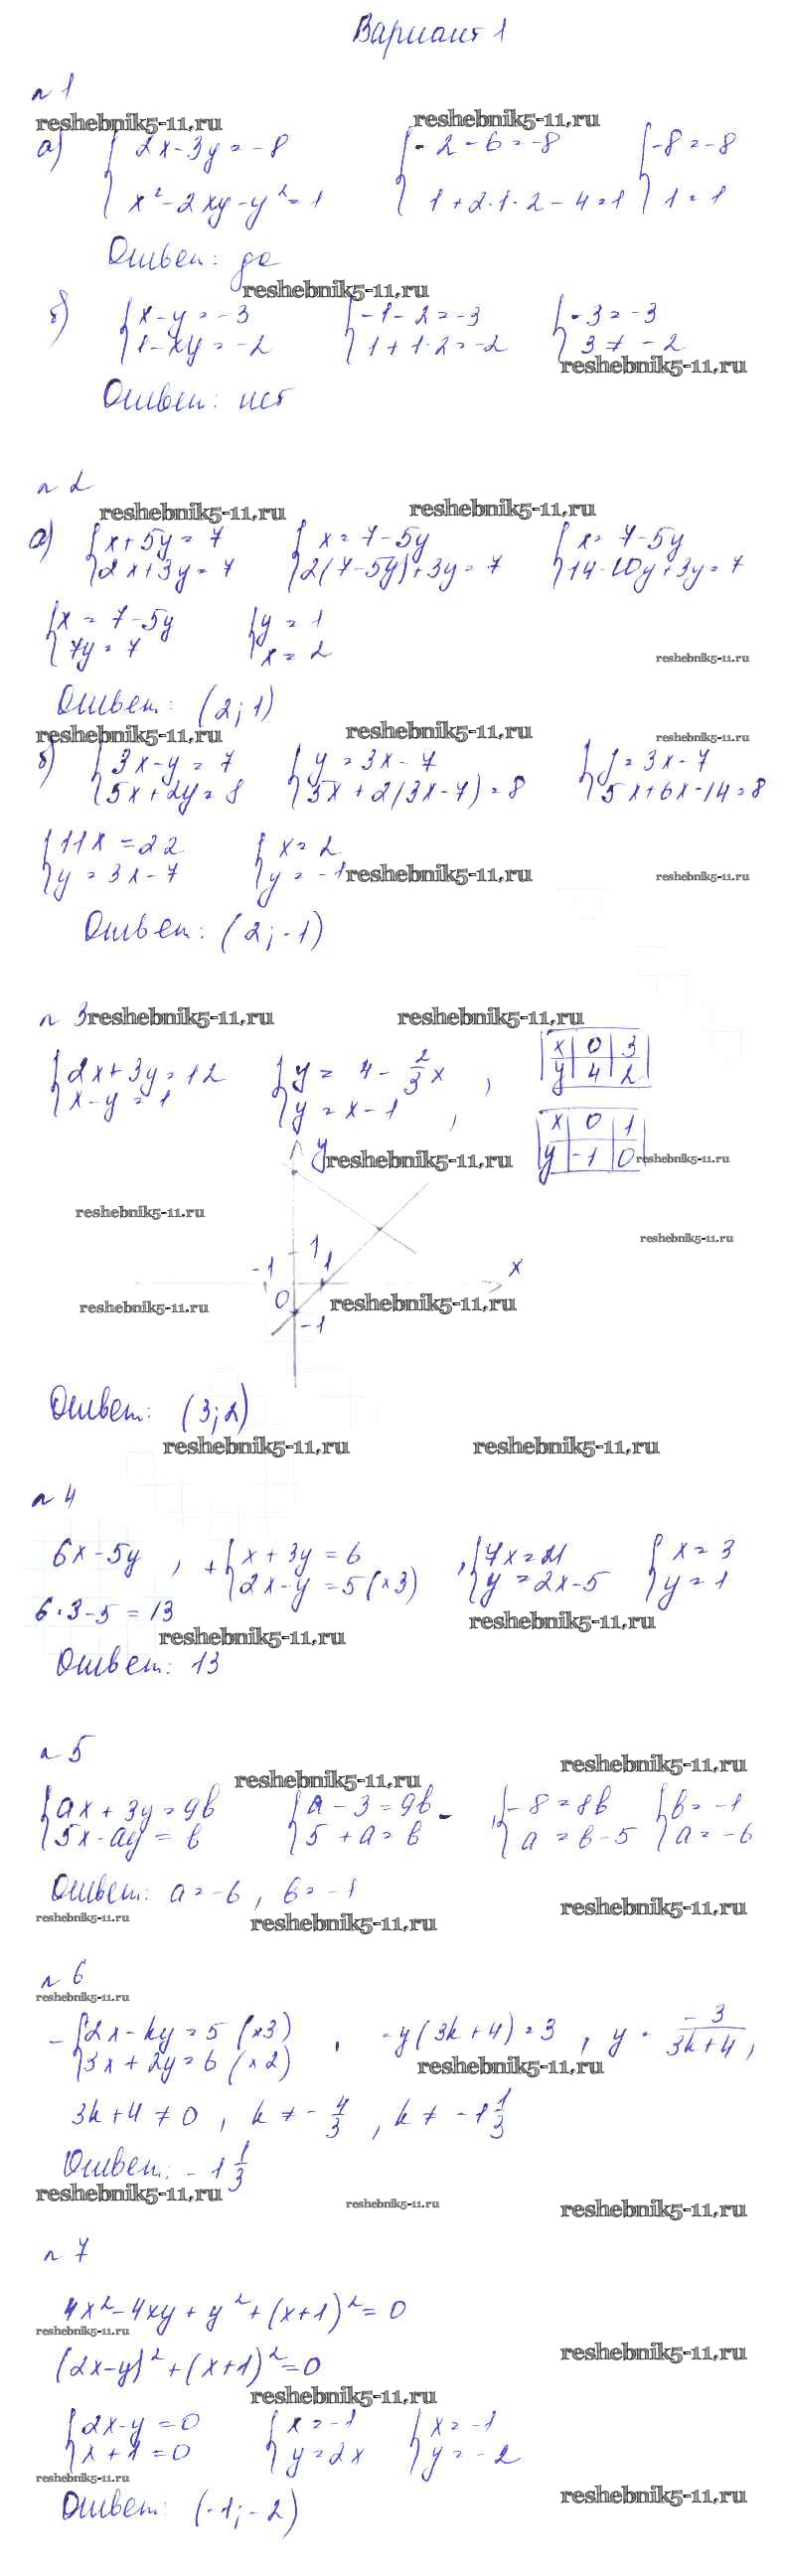 Вариант 1
n 1
reshebnik5-11.ru reshebnik5-11.ru
а) { 2x-3y=-8 { -2-6=-8 { -8=-8
x²-2xy-y²=1 1+2·1·2-4=1 1=1
Ответ: да
reshebnik5-11.ru
б) { x-y=-3 { -1-2=-3 { -3=-3
1-xy=-2 1+1·2=-2 3≠-2
reshebnik5-11.ru
Ответ: нет
n 2
reshebnik5-11.ru reshebnik5-11.ru
а) { x+5y=7 { x=7-5y { x=7-5y
2x+3y=7 2(7-5y)+3y=7 14-10y+3y=7
{ x=7-5y { y=1
7y=7 x=2
reshebnik5-11.ru
Ответ: (2;1)
reshebnik5-11.ru reshebnik5-11.ru reshebnik5-11.ru
б) { 3x-y=7 { y=3x-7 { y=3x-7
5x+2y=8 5x+2(3x-7)=8 5x+6x-14=8
{ 11x=22 { x=2
y=3x-7 y=-1
reshebnik5-11.ru reshebnik5-11.ru
Ответ: (2;-1)
n 3 reshebnik5-11.ru reshebnik5-11.ru
{ 2x+3y=12 { y=4-2/3x , x 0 3
x-y=1 y=x-1 , y 4 2
x 0 1
y -1 0
y reshebnik5-11.ru reshebnik5-11.ru
reshebnik5-11.ru
reshebnik5-11.ru
1
-1 1 x
0
reshebnik5-11.ru reshebnik5-11.ru
-1
Ответ: (3;2)
reshebnik5-11.ru reshebnik5-11.ru
n 4
6x-5y , + { x+3y=6 , { 7x=21 { x=3
2x-y=5 (×3) y=2x-5 y=1
6·3-5=13
reshebnik5-11.ru reshebnik5-11.ru
Ответ: 13
n 5
reshebnik5-11.ru reshebnik5-11.ru
{ ax+3y=9b { a-3=9b - , { -8=8b { b=-1
5x-ay=b 5+a=b a=b-5 a=-6
Ответ: a=-6, b=-1
reshebnik5-11.ru reshebnik5-11.ru reshebnik5-11.ru
n 6
reshebnik5-11.ru
- { 2x-ky=5 (×3) , -y(3k+4)=3 , y = -3/3k+4 ,
3x+2y=6 (×2)
reshebnik5-11.ru
3k+4≠0 , k≠-4/3 , k≠-1 1/3
Ответ: -1 1/3
reshebnik5-11.ru reshebnik5-11.ru reshebnik5-11.ru
n 7
4x²-4xy+y²+(x+1)²=0
reshebnik5-11.ru
(2x-y)²+(x+1)²=0
reshebnik5-11.ru
reshebnik5-11.ru
{ 2x-y=0 { x=-1 { x=-1
x+1=0 y=2x y=-2
reshebnik5-11.ru
reshebnik5-11.ru
Ответ: (-1;-2)